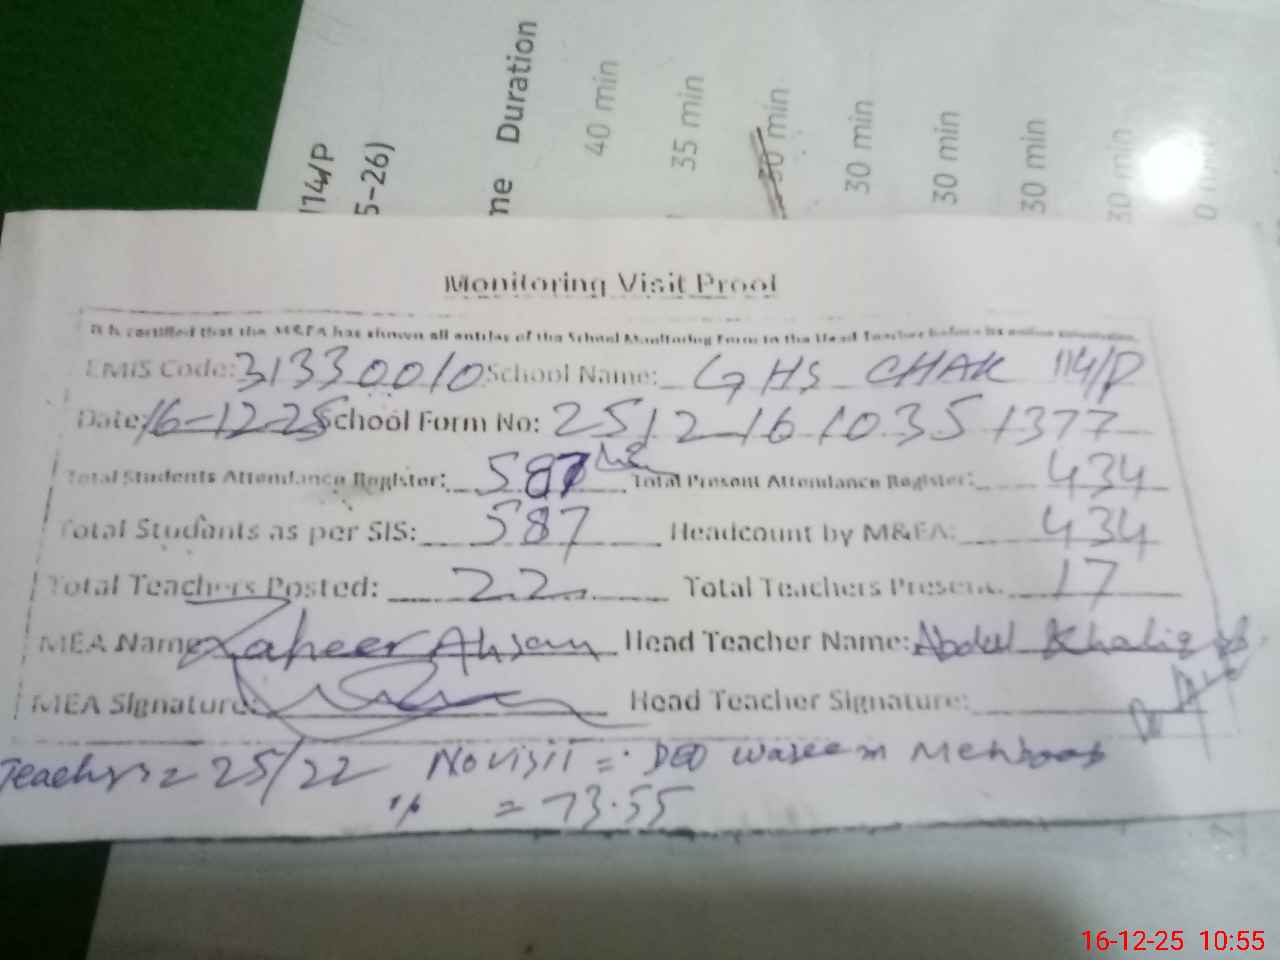 114/P
5-26)
ne Duration
40 min
35 min
30 min
30 min
30 min
30 min
30 min
0 min
Monitoring Visit Proof
It is certified that the M&EA has shown all entries of the School Monitoring Form to the Head Teacher before its online submission.
EMIS Code: 31330010 School Name: GHS CHAK 114/P
Date: 16-12-25 School Form No: 25121610351377
Total Students Attendance Register: 587 Total Present Attendance Register: 434
Total Students as per SIS: 587 Headcount by M&EA: 434
Total Teachers Posted: 22 Total Teachers Present: 17
MEA Name Zaheer Ahsan Head Teacher Name: Abdul Khaliq
MEA Signature: Head Teacher Signature:
Teachers = 25/22 No visit = DEO Waseem Mehboob
% = 73.55
16-12-25 10:55